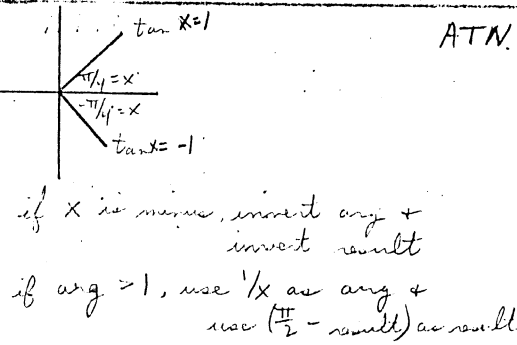 tan x=1
ATN.
π/4 = x
-π/4 = x
tan x = -1
if x is minus, invert arg +
invert result
if arg > 1, use 1/x as arg +
use (π/2 - result) as result.